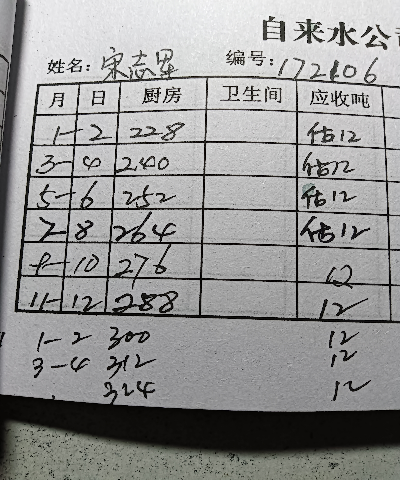 自来水公司
姓名: 宋志军 编号: 172106
月 日 厨房 卫生间 应收吨
1-2 228 估12
3-4 240 估12
5-6 252 估12
7-8 264 估12
9-10 276 12
11-12 288 12
1-2 300 12
3-4 312 12
324 12